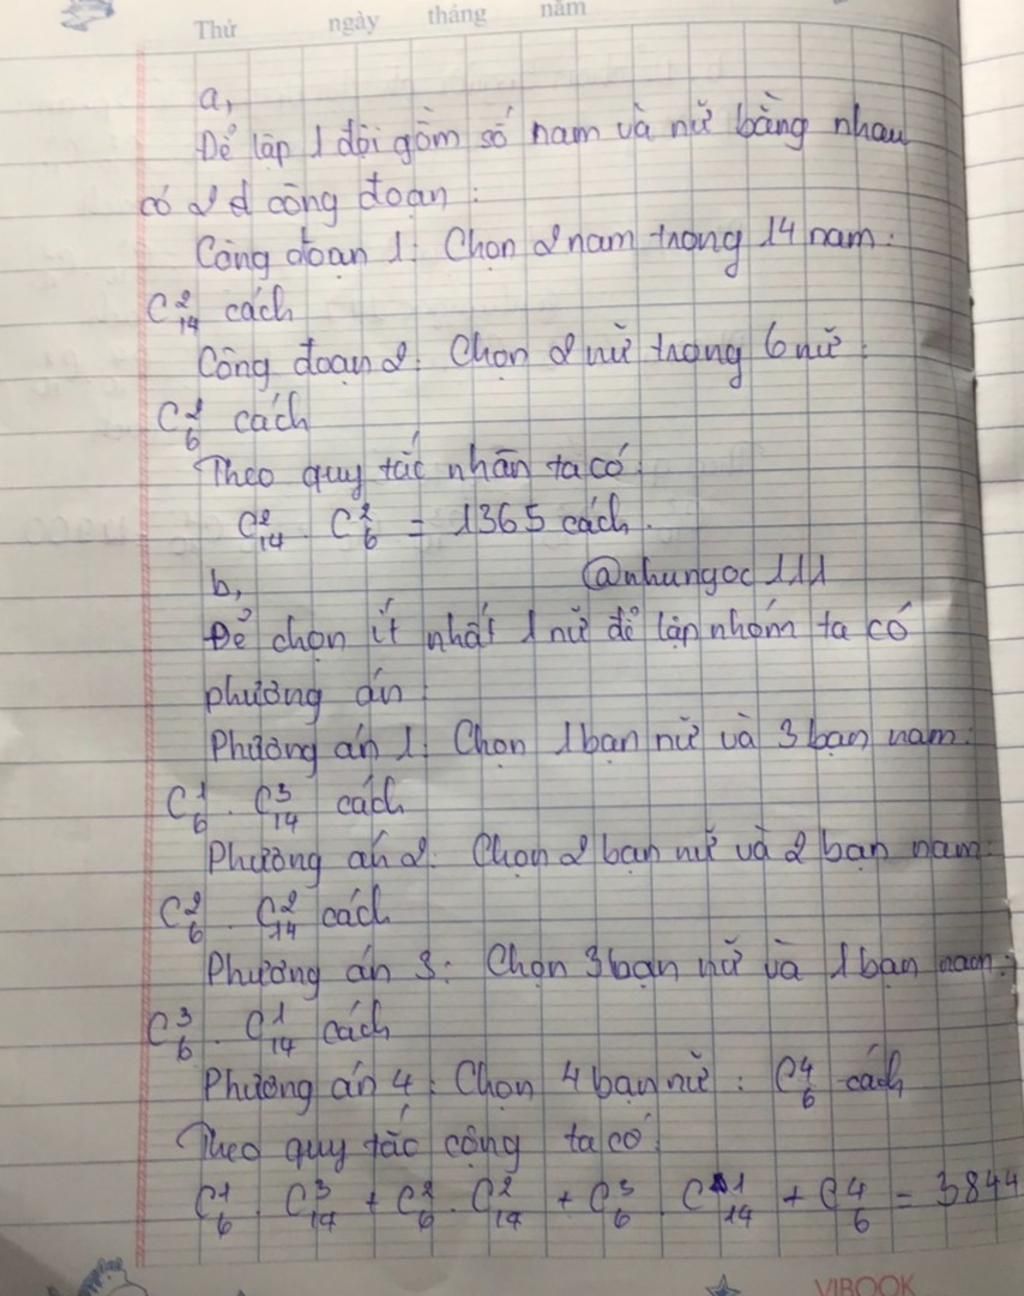 Thứ ngày tháng năm
a,
Để lập 1 đội gồm số nam và nữ bằng nhau
có 2 công đoạn :
Công đoạn 1: Chọn 2 nam trong 14 nam:
C²₁₄ cách
Công đoạn 2: Chọn 2 nữ trong 6 nữ :
C²₆ cách
Theo quy tắc nhân ta có
C²₁₄ . C²₆ = 1365 cách.
b, @nhungoc111
Để chọn ít nhất 1 nữ để lập nhóm ta có
phương án :
Phương án 1: Chọn 1 bạn nữ và 3 bạn nam:
C¹₆ . C³₁₄ cách
Phương án 2: Chọn 2 bạn nữ và 2 bạn nam:
C²₆ . C²₁₄ cách
Phương án 3: Chọn 3 bạn nữ và 1 bạn nam:
C³₆ . C¹₁₄ cách
Phương án 4: Chọn 4 bạn nữ : C⁴₆ cách
Theo quy tắc cộng ta có :
C¹₆ . C³₁₄ + C²₆ . C²₁₄ + C³₆ . C¹₁₄ + C⁴₆ = 3844
VIBOOK